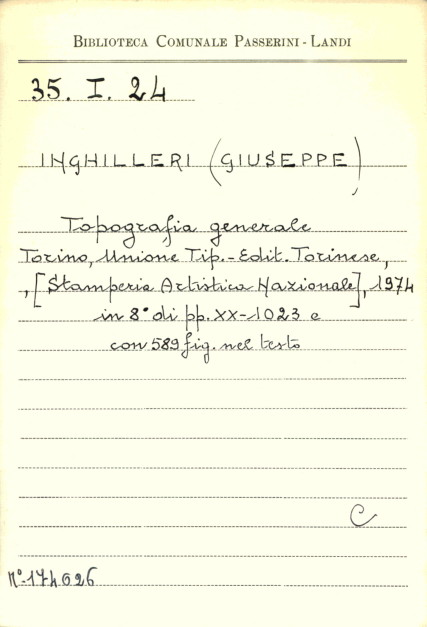 BIBLIOTECA COMUNALE PASSERINI - LANDI
35. I. 24
INGHILLERI (GIUSEPPE)
Topografia generale
Torino, Unione Tip.-Edit. Torinese,
, [Stamperia Artistica Nazionale], 1974
in 8° di pp. XX-1023 e
con 589 fig. nel testo
C
N° 174026